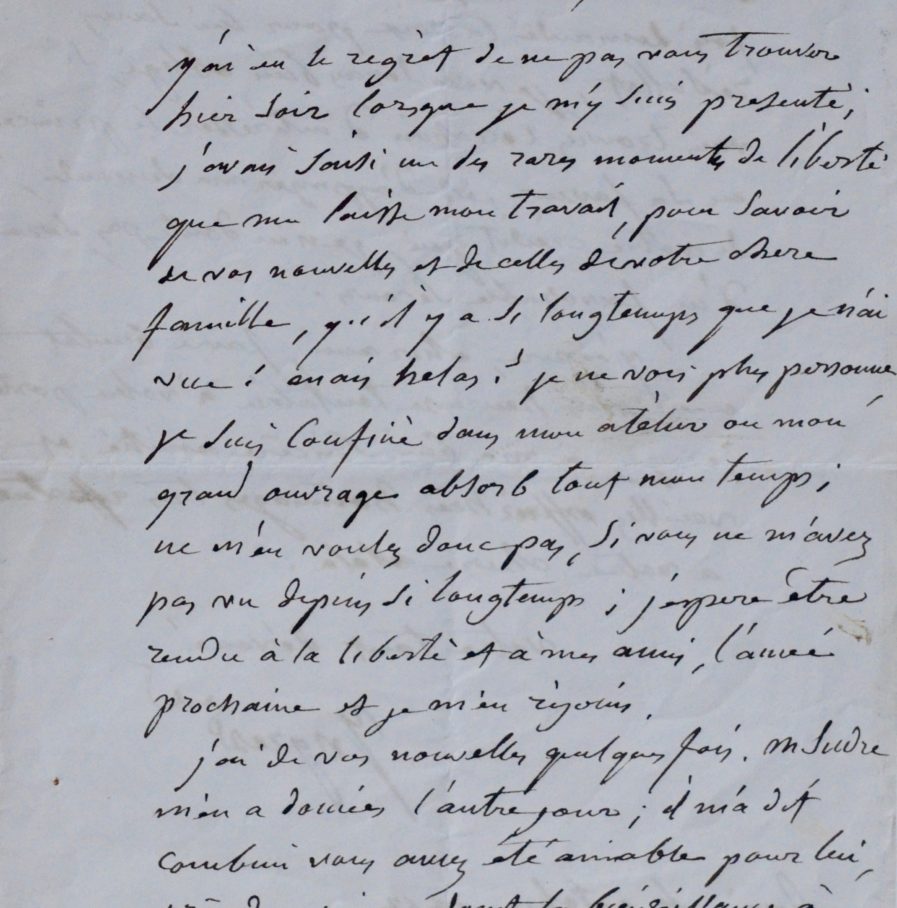 j'ai eu le regrèt de ne pas vous trouver
hier soir lorsque je m'y suis presenté;
j'avais saisi un des rares moments de liberté
que me laisse mon travail, pour savoir
de vos nouvelles et de celles de votre chere
famille, qu'il y a si longtemps que je n'ai
vue! mais helas! je ne vois plus personne
je suis confiné dans mon atelier ou mon
grand ouvrage absorb tout mon temps;
ne m'en voulez donc pas, si vous ne m'avez
pas vu depuis si longtemps; j'espere être
rendu à la liberté et à mes amis, l'année
prochaine et je m'en réjouis.
j'ai de vos nouvelles quelques fois. M Sudre
m'en a données l'autre jour; il m'a dit
combien vous avez été aimable pour lui,
dont la bienveillance à